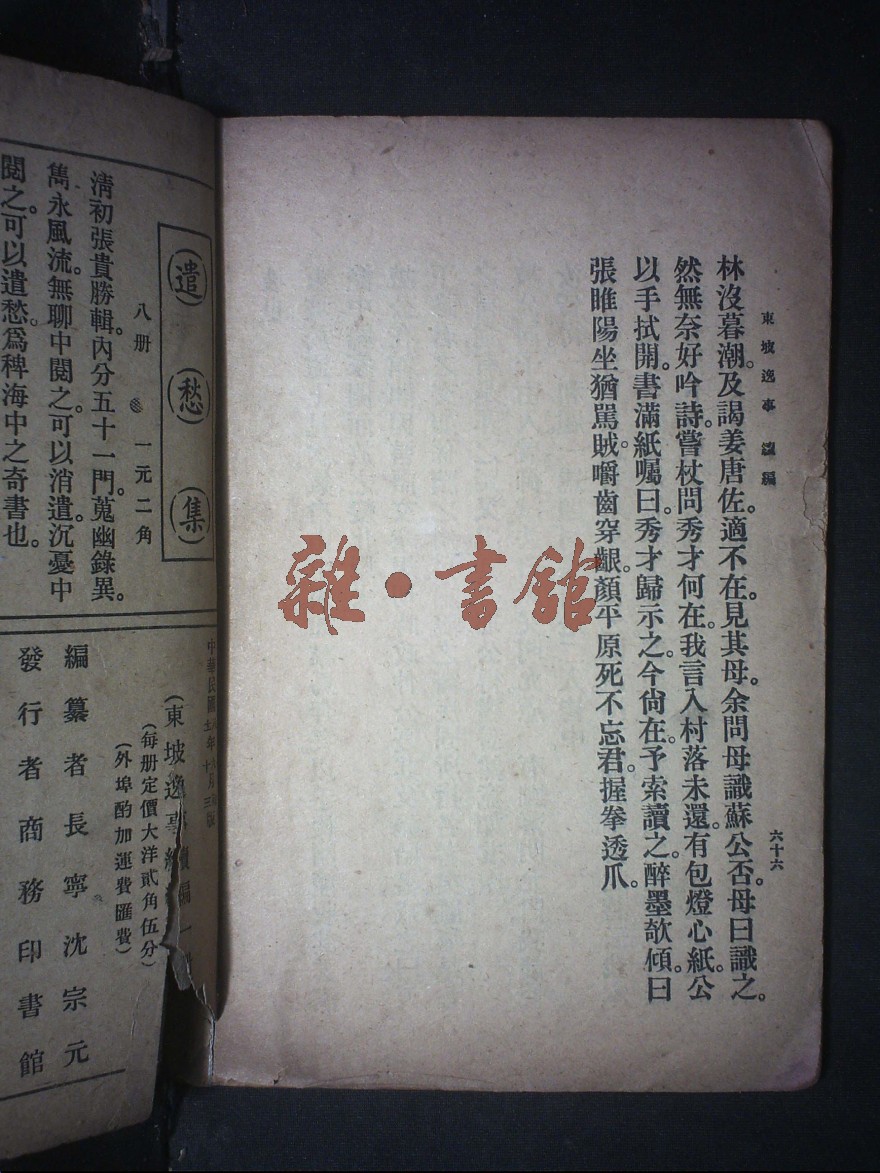 東坡逸事 續編
六十六
林沒暮潮。及謁姜唐佐。適不在。見其母。余問母識蘇公否。母曰識之。
然無奈好吟詩。嘗杖問秀才何在。我言入村落未還。有包燈心紙。公
以手拭開。書滿紙囑曰。秀才歸示之。今尙在。予索讀之。醉墨欹傾曰
張睢陽坐猶罵賊。嚼齒穿齦。顏平原死不忘君。握拳透爪。
雜·書館
遣愁集
八册 一元二角
淸初張貴勝輯。內分五十一門。蒐幽錄異。
雋永風流。無聊中閱之。可以消遣。沉憂中
閱之。可以遣愁。爲稗海中之奇書也。
中華民國 年 月三版
(東坡逸事續編一
(每册定價大洋貳角伍分)
(外埠酌加運費匯費)
編纂者 長寧沈宗元
發行者 商務印書館